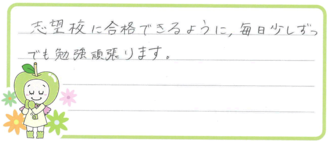 志望校に合格できるように,毎日少しずつ
でも勉強頑張ります。